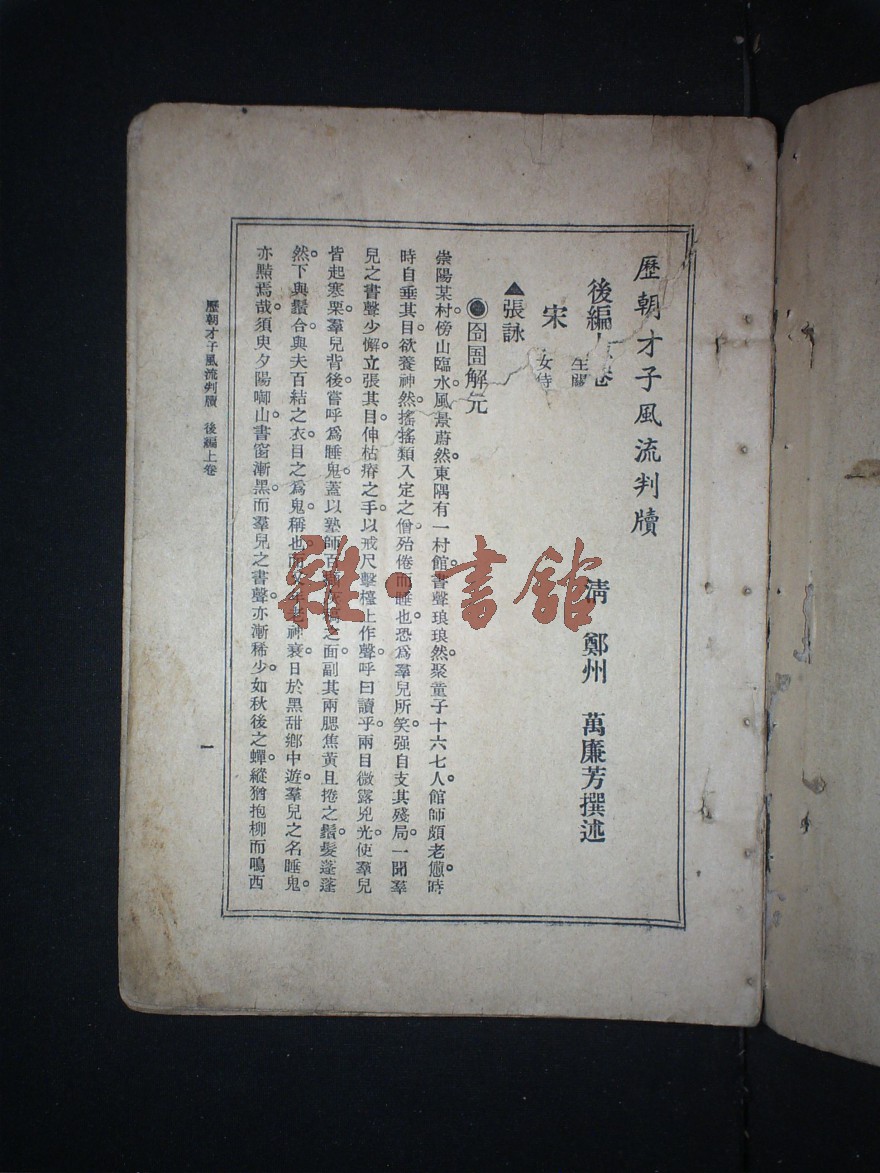 歷朝才子風流判牘
清 鄭州 萬廉芳撰述
後編上卷
宋
▲張詠
◉囹圄解元
崇陽某村。傍山臨水。風景蔚然。東隅有一村館。書聲琅琅然。聚童子十六七人。館師頗老憊。時
時自垂其目。欲養神然。搖搖類入定之僧。殆倦而睡也。恐爲羣兒所笑。强自支其殘局。一聞羣
兒之書聲少懈。立張其目。伸枯瘠之手。以戒尺擊檯上作聲。呼曰讀乎。兩目微露兇光。使羣兒
皆起寒栗。羣兒背後。嘗呼爲睡鬼。蓋以塾師百 之面。副其兩腮焦黃且捲之鬚。髮蓬蓬
然。下與鬚合。與夫百結之衣。目之爲鬼。稱也。而 老神衰。日於黑甜鄉中遊。羣兒之名睡鬼。
亦黠焉哉。須臾夕陽啣山。書窗漸黑。而羣兒之書聲。亦漸稀少。如秋後之蟬。縱猶抱柳而鳴。西
歷朝才子風流判牘 後編上卷
一
雜·書館